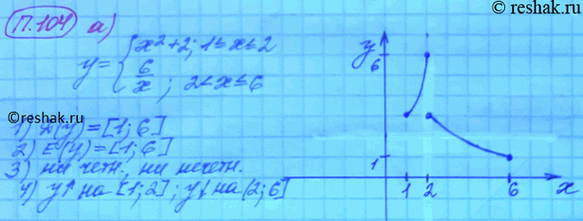 reshak.ru
П.104 а)
y = { x²+2; 1≤x≤2
6/x; 2<x≤6
©reshak.ru
1) D(y)=[1;6]
2) E(y)=[1;6]
3) ни четн., ни нечетн.
4) y↑ на [1;2]; y↓ на (2;6]
y
6
1
1 2 6 x
©reshak.ru